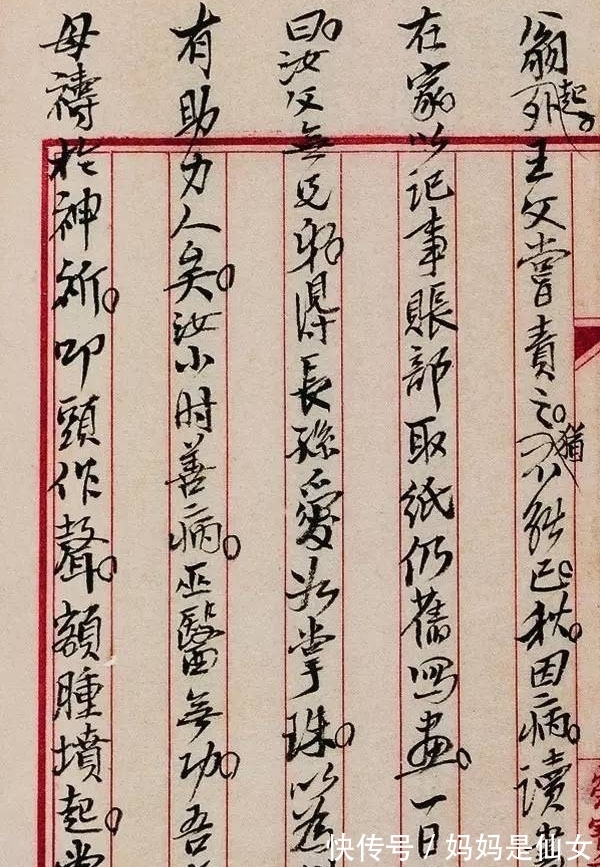 翁形起。王父嘗責之。猶不能已。秋。因病。讀書
在家。以記事賬部取紙仍舊寫畫。一日
曰。汝父無兄弟。得長孫愛如掌珠。以為
有助力人矣。汝小时善病。巫醫無功。吾
母禱於神祈。叩頭作聲。額腫墳起。嘗
快传号/妈妈是仙女